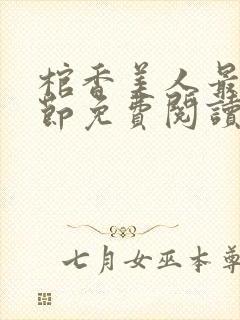 棺香美人最
節免費閱讀
七月女巫本尊